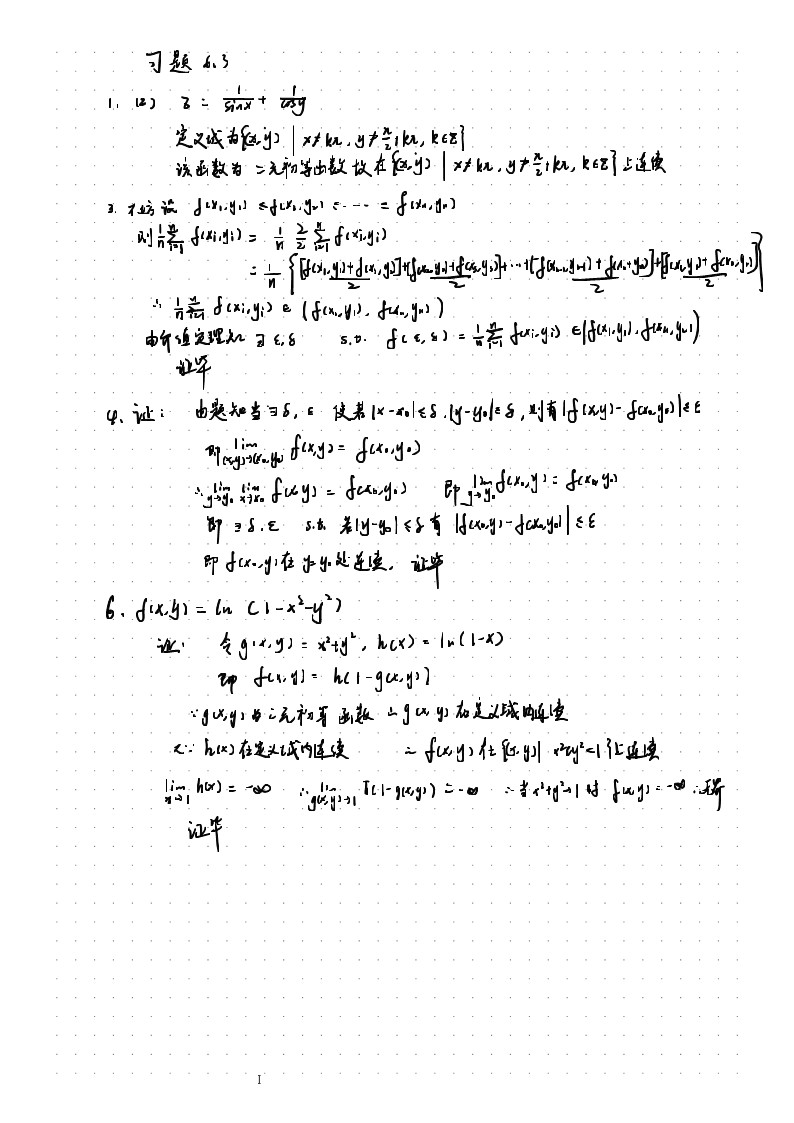 习题 6.3
1. (3) z = 1/sinx + 1/cosy
定义域为{(x,y) | x≠kπ, y≠π/2+kπ, k∈Z}
该函数为二元初等函数 故在{(x,y) | x≠kπ, y≠π/2+kπ, k∈Z}上连续
3. 不妨设 f(x₁,y₁) ≤ f(x₂,y₂) ≤ ⋯ = f(xₙ,yₙ)
则 1/n ∑ᵢ₌₁ⁿ f(xi,yi) = 1/n 2/2 ∑ᵢ₌₁ⁿ f(xi,yi)
∴ 1/n ∑ᵢ₌₁ⁿ f(xi,yi) ∈ (f(x₁,y₁), f(xₙ,yₙ))
由介值定理知 ∃ ε,δ s.t. f(ε,δ) = 1/n ∑ᵢ₌₁ⁿ f(xi,yi) ∈ (f(x₁,y₁), f(xₙ,yₙ))
证毕
4. 证: 由题知当∃δ, ε 使若|x-x₀|≤δ, |y-y₀|≤δ, 则有|f(x,y)-f(x₀,y₀)|≤ε
即 lim (x,y)→(x₀,y₀) f(x,y) = f(x₀,y₀)
∴ lim y→y₀ lim x→x₀ f(x,y) = f(x₀,y₀) 即 lim y→y₀ f(x₀,y) = f(x₀,y₀)
即 ∃δ,ε s.t. 若|y-y₀|≤δ 有 |f(x₀,y)-f(x₀,y₀)|≤ε
即 f(x₀,y)在y=y₀处连续. 证毕
6. f(x,y) = ln (1-x²-y²)
证: 令 g(x,y) = x²+y², h(x) = ln(1-x)
即 f(x,y) = h(1-g(x,y))
∵ g(x,y)为二元初等函数 ∴ g(x,y)在定义域内连续
又∵ h(x)在定义域内连续 ∴ f(x,y)在{(x,y)| x²+y²<1}上连续
lim x→1 h(x) = -∞ ∴ lim g(x,y)→1 (1-g(x,y)) = -∞ ∴ 当x²+y²→1时 f(x,y) = -∞ ∴无界
证毕
I